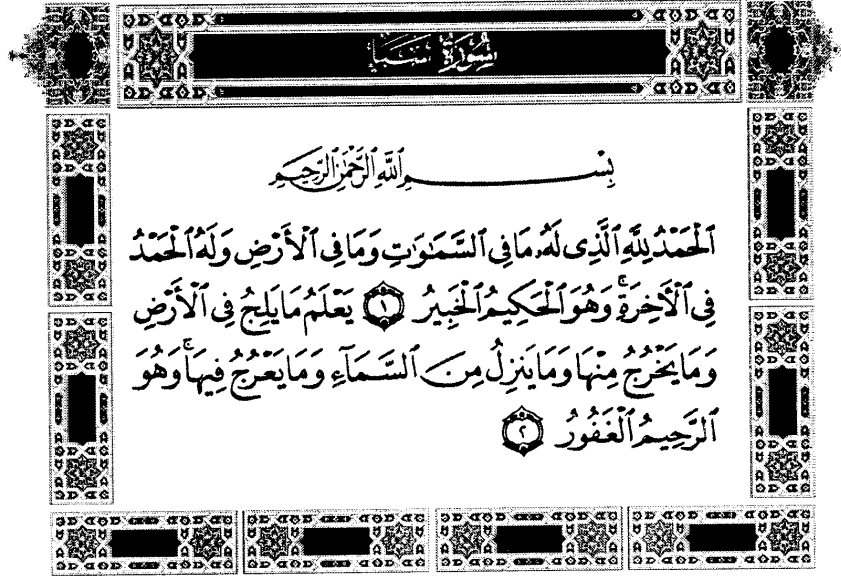 سُورَةُ سَبَإٍ
بِسْمِ اللَّهِ الرَّحْمَٰنِ الرَّحِيمِ
الْحَمْدُ لِلَّهِ الَّذِى لَهُۥ مَا فِى السَّمَٰوَٰتِ وَمَا فِى الْأَرْضِ وَلَهُ الْحَمْدُ
فِى الْآخِرَةِ ۚ وَهُوَ الْحَكِيمُ الْخَبِيرُ ١ يَعْلَمُ مَا يَلِجُ فِى الْأَرْضِ
وَمَا يَخْرُجُ مِنْهَا وَمَا يَنزِلُ مِنَ السَّمَآءِ وَمَا يَعْرُجُ فِيهَا ۚ وَهُوَ
الرَّحِيمُ الْغَفُورُ ٢